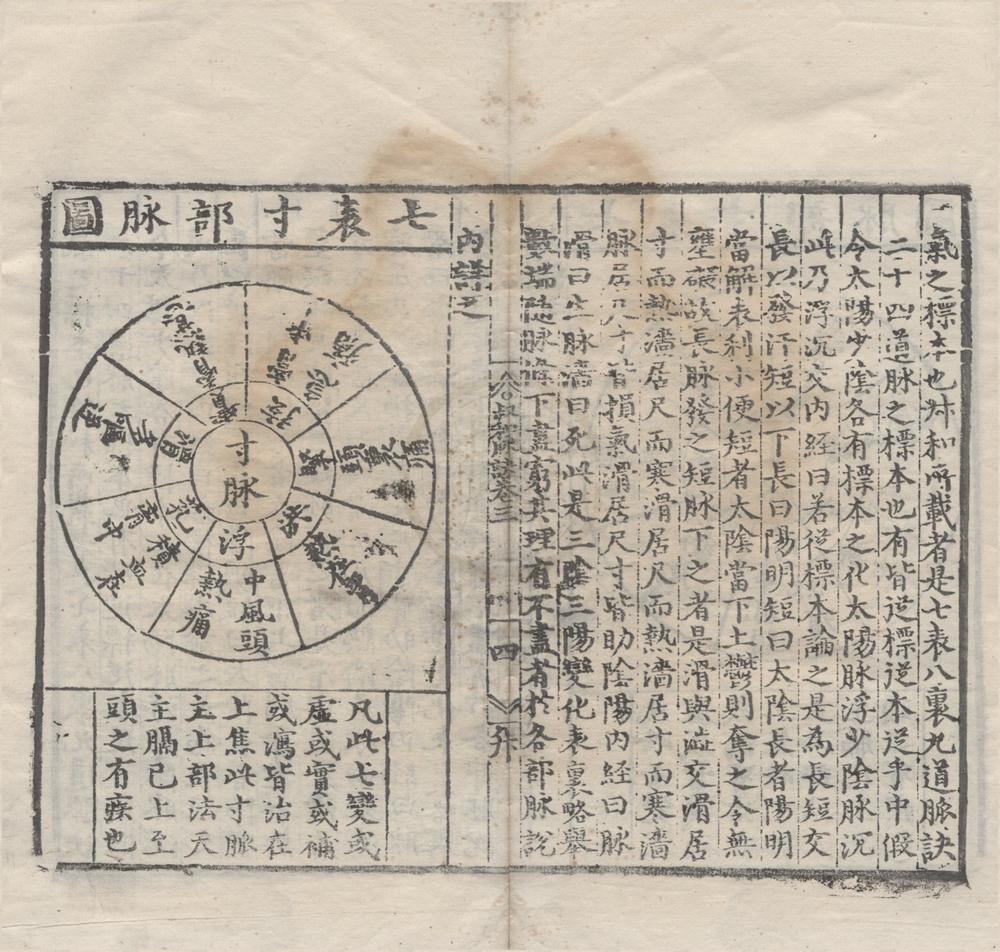 氣之標本也叔和所載者是七表八裏九道脉訣
二十四道脉之標本也有皆從標從本從乎中假
令太陽少陰各有標本之化太陽脉浮少陰脉沉
此乃浮沉交内經曰若從標本論之是為長短交
長以發汗短以下長曰陽明短曰太陰長者陽明
當解表利小便短者太陰當下土鬱則奪之令無
壅礙故長脉發之短脉下之者是滑與澁交滑居
寸而熱濇居尺而寒滑居尺而熱濇居寸而寒濇
脉居尺寸皆損氣滑居尺寸皆助陰陽内經曰脉
滑曰生脉濇曰死此是三陰三陽變化表裏略舉
數端隨脉條下盡窮其理有不盡者於各部脉說
内詳之
叔和脉訣卷三
四
七表寸部脉圖
寸脉
浮
中風頭
熱痛
芤
積血在
胷中
滑
弦
緊
頭裏痛
洪
凡此七變或
虛或實或補
或瀉皆治在
上焦此寸脈
主上部法天
主膈已上至
頭之有疾也